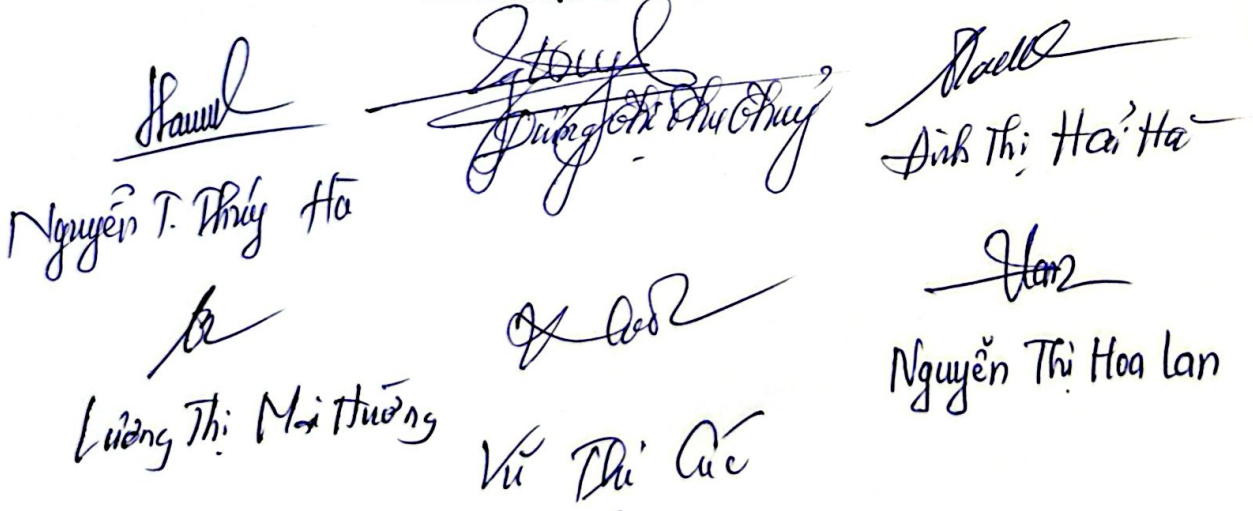 Nguyễn T. Thúy Hà
Dương Thị Thu Thuỷ
Đinh Thị Hải Hà
Lương Thị Mai Hương
Vũ Thị Cúc
Nguyễn Thị Hoa Lan